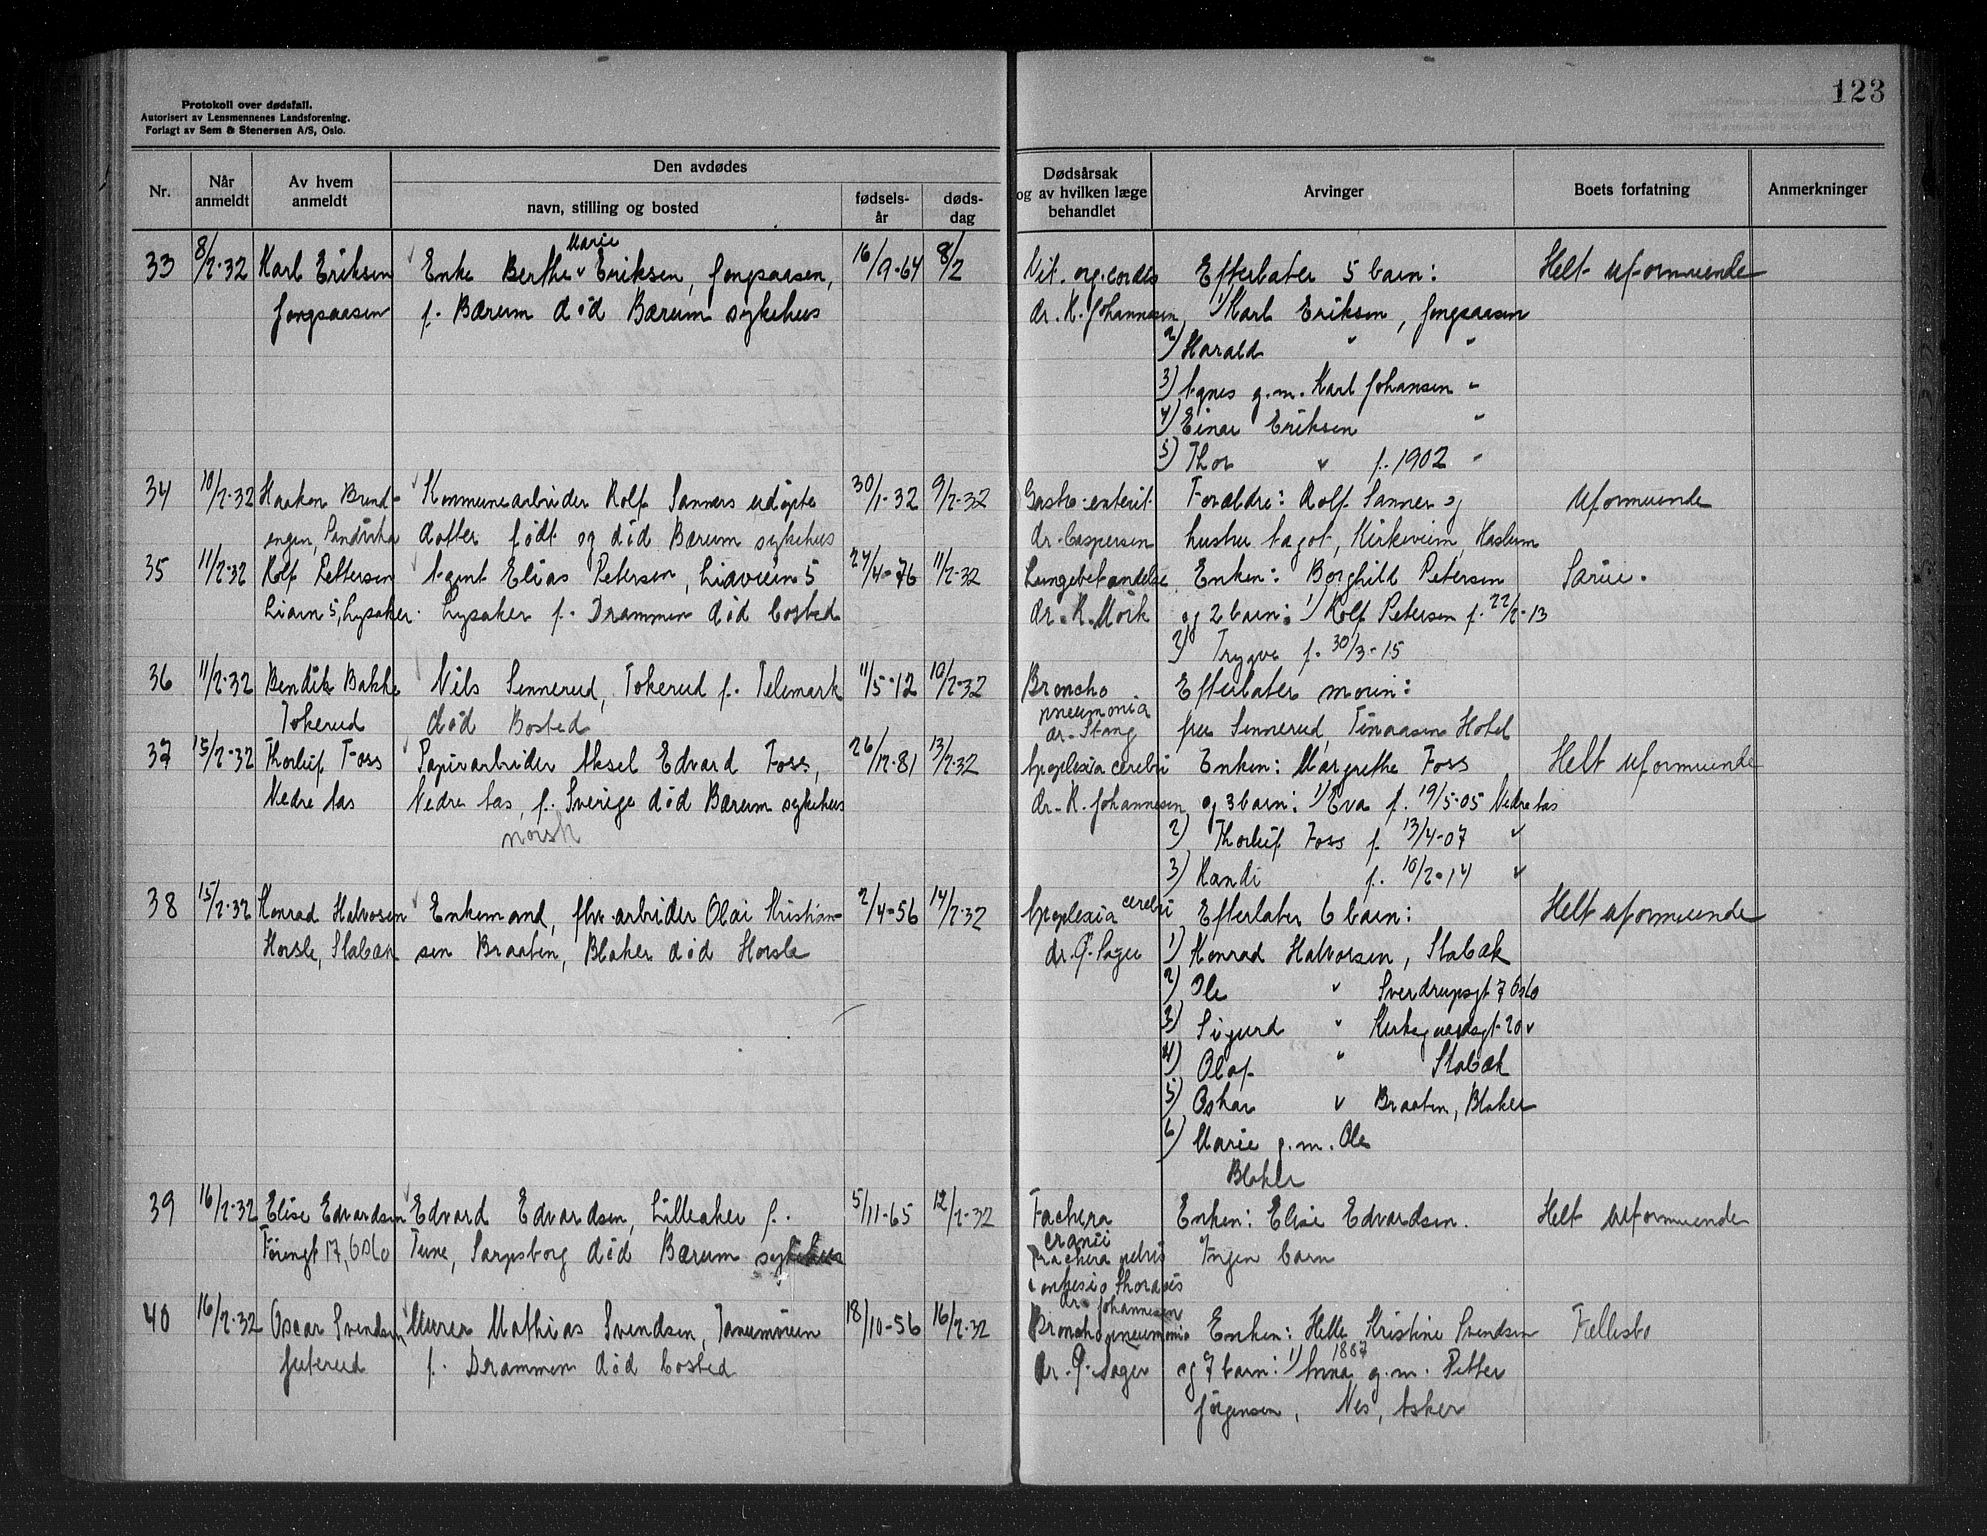 Protokoll over dødsfall.
Autorisert av Lensmennenes Landsforening.
Forlagt av Sem & Stenersen A/S, Oslo.
123
Nr.
Når anmeldt
Av hvem anmeldt
Den avdødes
navn, stilling og bosted
fødsels-år
døds-dag
Dødsårsak og av hvilken læge behandlet
Arvinger
Boets forfatning
Anmerkninger
33 8/2-32 Karl Eriksen Enke Berthe Marie Eriksen, Jongsaasen, 16/9-64 8/2 Vit. org. cordis Efterlater 5 barn: Helt uformuende
Jongsaasen f. Bærum død Bærum sykehus dr. K. Johannesen 1) Karl Eriksen, Jongsaasen
2) Harald " "
3) Agnes g.m. Karl Johansen "
4) Einar Eriksen "
5) Thor " f. 1902 "
34 10/2-32 Haaken Brend- Kommunearbeider Rolf Sanners udøpte 30/1-32 9/2-32 Gastro-enterit. Forældre: Rolf Sanner og Uformuende
engen, Sandvika datter født og død Bærum sykehus dr. Caspersen hustru Aagot, Kirkeveien, Haslum
35 11/2-32 Rolf Pettersen Agent Elias Petersen, Liaveien 5 24/4-76 11/2-32 Lungebetændelse Enken: Borghild Petersen Særeie.
Liavn 5, Lysaker. Lysaker f. Drammen død bosted dr. K. Mørk og 2 barn: 1) Rolf Petersen f. 22/2-13
2) Trygve f. 30/3-15
36 11/2-32 Bendik Bakke Nils Sennerud, Tokerud f. Telemark 11/5-12 10/2-32 Broncho Efterlater moren:
Tokerud død Bosted pneumonia fru Sennerud, Tinaasen Hotel
dr. Stang
37 15/2-32 Thorleif Foss Papirarbeider Aksel Edvard Foss, 26/12-81 13/2-32 Apoplexia cerebri Enken: Margrethe Foss Helt uformuende
Nedre Aas Nedre Aas, f. Sverige død Bærum sykehus dr. K. Johannesen og 3 barn: 1) Eva f. 19/5-05 Nedre Aas
norsk 2) Thorleif Foss f. 13/4-07 "
3) Randi f. 10/2-14 "
38 15/2-32 Konrad Halvosen Enkemand, fhv. arbeider Olai Kristian- 2/4-56 14/2-32 Apoplexia cerebri Efterlater 6 barn: Helt uformuende
Horsle, Stabæk sen Braaten, Blaker død Horsle dr. Q. Sager 1) Konrad Halvorsen, Stabæk
2) Ole " Sverdrupsgt 7 Oslo
3) Sigurd " Kirkegaardsgt 20 "
4) Olaf " Stabæk
5) Oskar " Braaten, Blaker
6) Marie g.m. Ole
Blaker
39 16/2-32 Elise Edvardsen Edvard Edvardsen, Lilleaker f. 5/11-65 12/2-32 Fractura Enken: Elise Edvardsen. Helt uformuende
17, Oslo Tune, Sarpsborg død Bærum sykehus cranii Ingen barn
Fractura pelvis
Contusio thoracis
dr. Johannesen
40 16/2-32 Oscar Svendsen Murer Mathias Svendsen, Tanumveien 18/10-56 16/2-32 Bronchopneumonia Enken: Helle Kristine Svendsen Fellesbo
Juterud f. Drammen død bosted dr. Q. Sager og 7 barn: 1) Anna 1887 g.m. Petter
Jørgensen, Nes, Asker